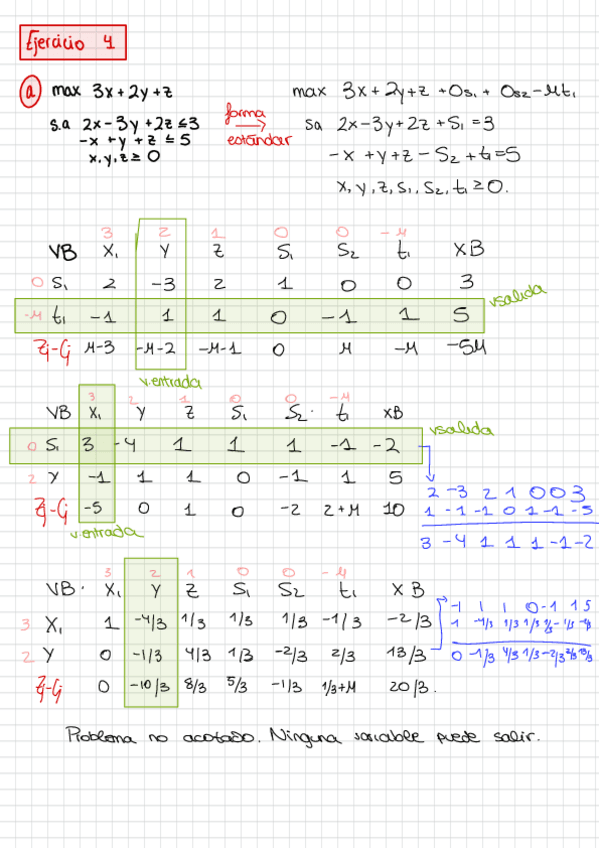 Ejercicio 4
a max 3x + 2y + z
s.a 2x - 3y + 2z ≤ 3
-x + y + z ≤ 5
x, y, z ≥ 0
forma
→
estándar
max 3x + 2y + z + 0s₁ + 0s₂ - Mt₁
sa 2x - 3y + 2z + S₁ = 3
-x + y + z - S₂ + t₁ = 5
x, y, z, s₁, s₂, t₁ ≥ 0.
3 2 1 0 0 -M
VB X₁ Y Z S₁ S₂ t₁ XB
0 S₁ 2 -3 2 1 0 0 3
-M t₁ -1 1 1 0 -1 1 5
v.salida
Zj-Cj M-3 -M-2 -M-1 0 M -M -5M
v.entrada
3 2 1 0 0 -M
VB X₁ Y Z S₁ S₂. t₁ XB
0 S₁ 3 -4 1 1 1 -1 -2
v.salida
2 Y -1 1 1 0 -1 1 5
Zj-Cj -5 0 1 0 -2 2+M 10
v.entrada
2 -3 2 1 0 0 3
1 -1 -1 0 1 -1 -5
3 -4 1 1 1 -1 -2
3 2 1 0 0 -M
VB. X₁ Y Z S₁ S₂ t₁ XB
3 X₁ 1 -4/3 1/3 1/3 1/3 -1/3 -2/3
2 Y 0 -1/3 4/3 1/3 -2/3 2/3 13/3
Zj-Cj 0 -10/3 8/3 5/3 -1/3 1/3+M 20/3.
-1 1 1 0 -1 1 5
0 -1/3 4/3 1/3 -2/3 2/3 13/3
Problema no acotado. Ninguna variable puede salir.